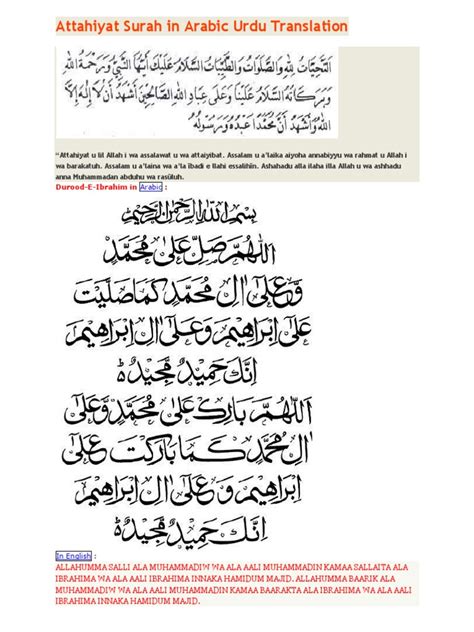 Attahiyat Surah in Arabic Urdu Translation
اَلتَّحِيَّاتُ لِلّٰهِ وَالصَّلَوَاتُ وَالطَّيِّبَاتُ اَلسَّلَامُ عَلَيْكَ اَيُّهَا النَّبِيُّ وَرَحْمَةُ اللهِ
وَبَرَكَاتُهُ اَلسَّلَامُ عَلَيْنَا وَعَلَى عِبَادِ اللهِ الصَّالِحِيْنَ اَشْهَدُ اَنْ لَّا اِلٰهَ اِلَّا
اللهُ وَاَشْهَدُ اَنَّ مُحَمَّدًا عَبْدُهُ وَرَسُوْلُهُ
"Attahiyat u lil Allah i wa assalawat u wa attaiyibat. Assalam u a'laika aiyoha annabiyyu wa rahmat u Allah i
wa barakatuh. Assalam u a'laina wa a'la ibadi e llahi essalihin. Ashahadu alla ilaha illa Allah u wa ashhadu
anna Muhammadan abduhu wa rasūluh.
Durood-E-Ibrahim in Arabic :
بِسْمِ اللهِ الرَّحْمٰنِ الرَّحِيْمِ
اَللّٰهُمَّ صَلِّ عَلٰى مُحَمَّدٍ
وَّعَلٰى اٰلِ مُحَمَّدٍ كَمَا صَلَّيْتَ
عَلٰى اِبْرَاهِيْمَ وَعَلٰى اٰلِ اِبْرَاهِيْمَ
اِنَّكَ حَمِيْدٌ مَّجِيْدٌ
اَللّٰهُمَّ بَارِكْ عَلٰى مُحَمَّدٍ وَّعَلٰى
اٰلِ مُحَمَّدٍ كَمَا بَارَكْتَ عَلٰى
اِبْرَاهِيْمَ وَعَلٰى اٰلِ اِبْرَاهِيْمَ
اِنَّكَ حَمِيْدٌ مَّجِيْدٌ
In English :
ALLAHUMMA SALLI ALA MUHAMMADIW WA ALA AALI MUHAMMADIN KAMAA SALLAITA ALA
IBRAHIMA WA ALA AALI IBRAHIMA INNAKA HAMIDUM MAJID. ALLAHUMMA BAARIK ALA
MUHAMMADIW WA ALA AALI MUHAMMADIN KAMAA BAARAKTA ALA IBRAHIMA WA ALA AALI
IBRAHIMA INNAKA HAMIDUM MAJID.